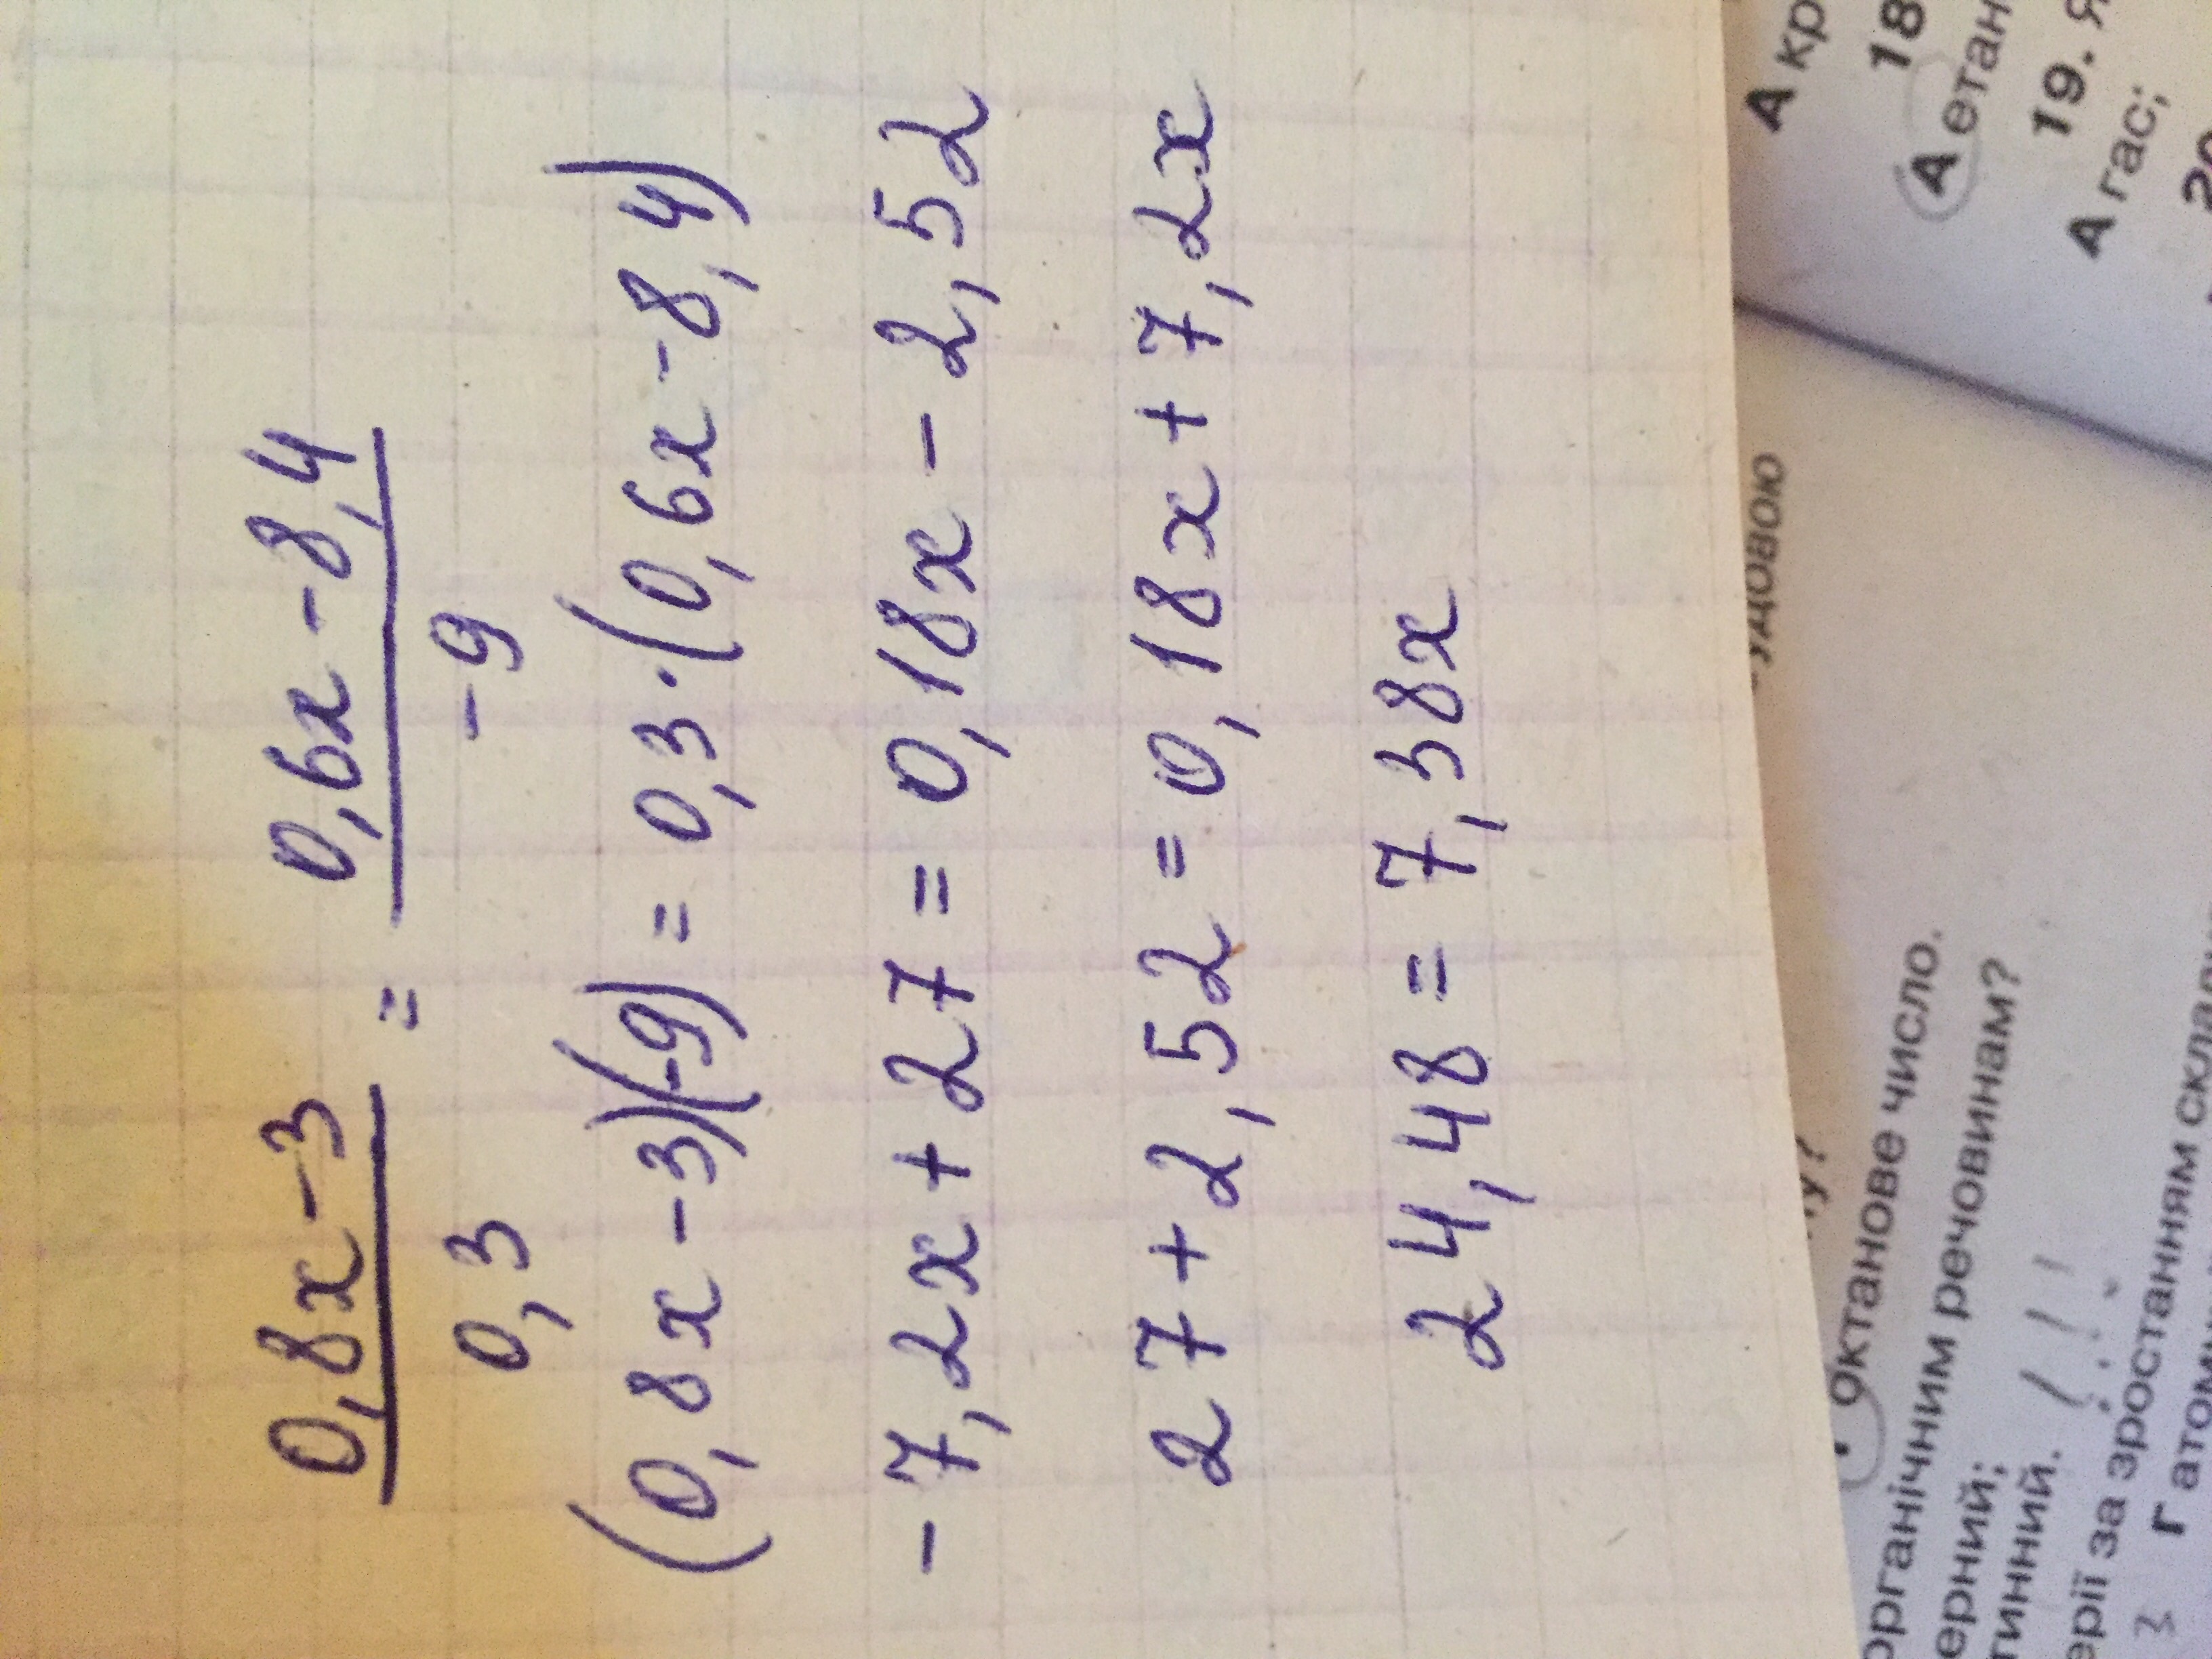 0,8x - 3 = 0,6x - 8,4
0,3 -9
(0,8x - 3)(-9) = 0,3 · (0,6x - 8,4)
-7,2x + 27 = 0,18x - 2,52
27 + 2,52 = 0,18x + 7,2x
24,48 = 7,38x
А кр
18
А етан
19. Я
А гас;
20
удовою
ну?
Октанове число.
органічним речовинам?
ерний;
тинний.
ерії за зростанням склад
3 Г атом